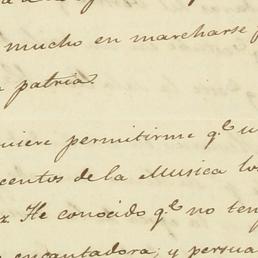 mucho en marcharse
patria.
quiere permitirme q.e u
centos de la Musica los
z. He conocido q.e no ten
encantadora; y persua